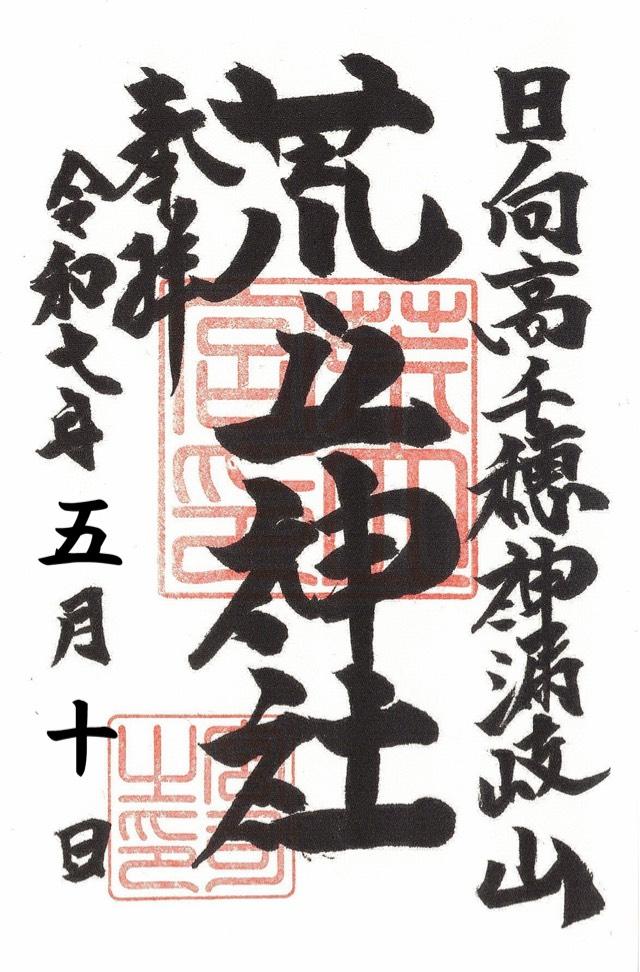 日向高千穂神漏岐山
荒立神社
奉拝
令和七年五月十日